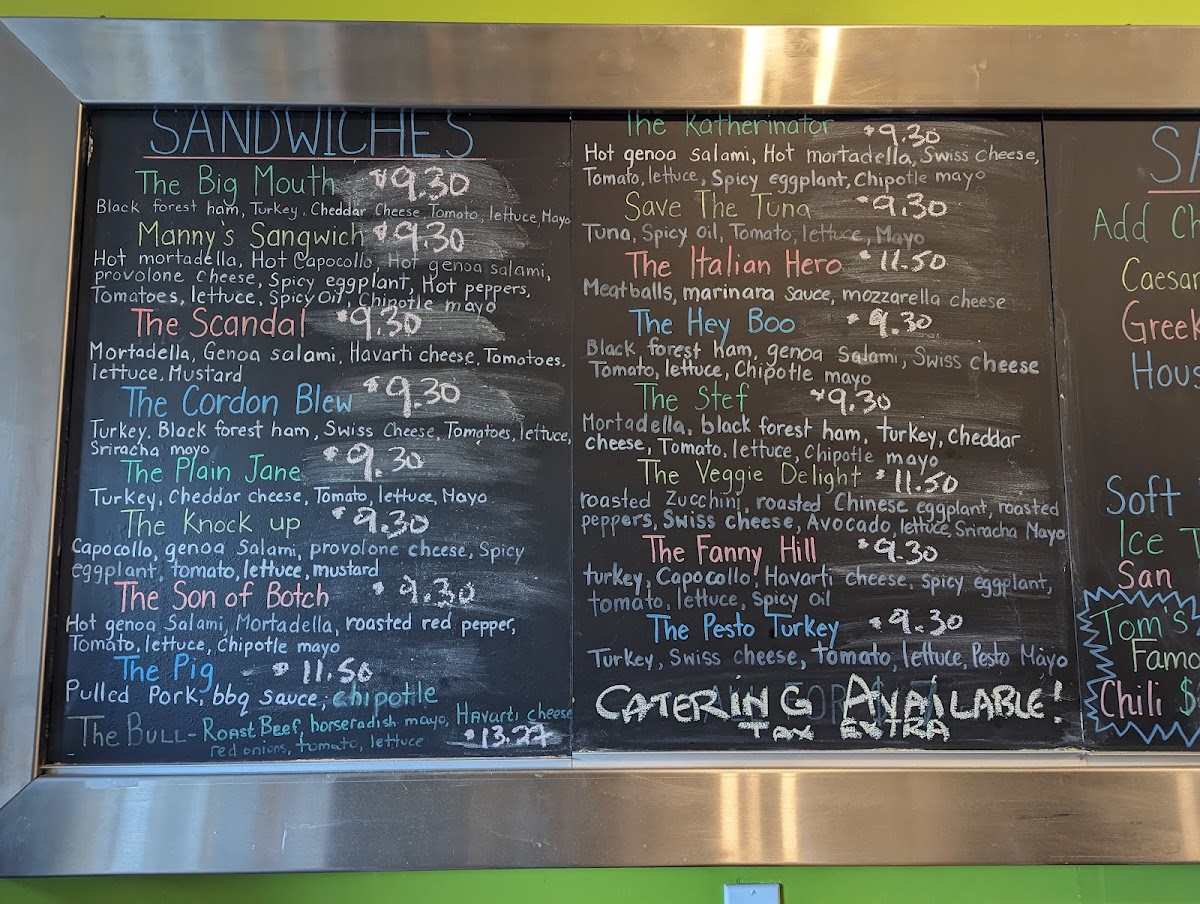 SANDWICHES
The Big Mouth $9.30
Black forest ham, Turkey, Cheddar Cheese, Tomato, lettuce, Mayo
Manny's Sangwich $9.30
Hot mortadella, Hot Capocollo, Hot genoa salami,
provolone cheese, Spicy eggplant, Hot peppers,
Tomatoes, lettuce, Spicy Oil, Chipotle mayo
The Scandal $9.30
Mortadella, Genoa salami, Havarti cheese, Tomatoes,
lettuce, Mustard
The Cordon Blew $9.30
Turkey, Black forest ham, Swiss Cheese, Tomatoes, lettuce,
Sriracha mayo
The Plain Jane $9.30
Turkey, Cheddar cheese, Tomato, lettuce, Mayo
The Knock up $9.30
Capocollo, genoa Salami, provolone cheese, Spicy
eggplant, tomato, lettuce, mustard
The Son of Botch $9.30
Hot genoa Salami, Mortadella, roasted red pepper,
Tomato, lettuce, chipotle mayo
The Pig $11.50
Pulled Pork, bbq sauce, chipotle
The Bull - Roast Beef, horseradish mayo, Havarti cheese
red onions, tomato, lettuce $13.27
The Katherinator $9.30
Hot genoa salami, Hot mortadella, Swiss cheese,
Tomato, lettuce, Spicy eggplant, Chipotle mayo
Save The Tuna $9.30
Tuna, Spicy Oil, Tomato, lettuce, Mayo
The Italian Hero $11.50
Meatballs, marinara sauce, mozzarella cheese
The Hey Boo $9.30
Black forest ham, genoa Salami, Swiss cheese
Tomato, lettuce, Chipotle mayo
The Stef $9.30
Mortadella, black forest ham, turkey, cheddar
cheese, Tomato, lettuce, Chipotle mayo
The Veggie Delight $11.50
roasted Zucchini, roasted Chinese eggplant, roasted
peppers, Swiss cheese, Avocado, lettuce, Sriracha Mayo
The Fanny Hill $9.30
turkey, Capocollo, Havarti cheese, spicy eggplant,
tomato, lettuce, spicy oil
The Pesto Turkey $9.30
Turkey, Swiss cheese, tomato, lettuce, Pesto Mayo
CATERING AVAILABLE!
TAX EXTRA
Add Ch
Caesar
Greek
Hous
Soft
Ice T
San
Tom's
Famo
Chili $